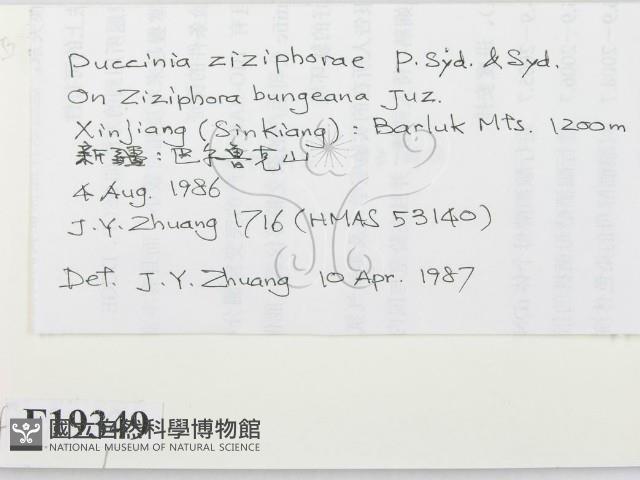 Puccinia ziziphorae P. Syd. & Syd.
On Ziziphora bungeana Juz.
Xinjiang (Sinkiang) : Barluk Mts. 1200m
新疆 : 巴尔鲁克山
4 Aug. 1986
J. Y. Zhuang 1716 (HMAS 53140)
Det. J. Y. Zhuang 10 Apr. 1987
F19349
國立自然科學博物館
NATIONAL MUSEUM OF NATURAL SCIENCE